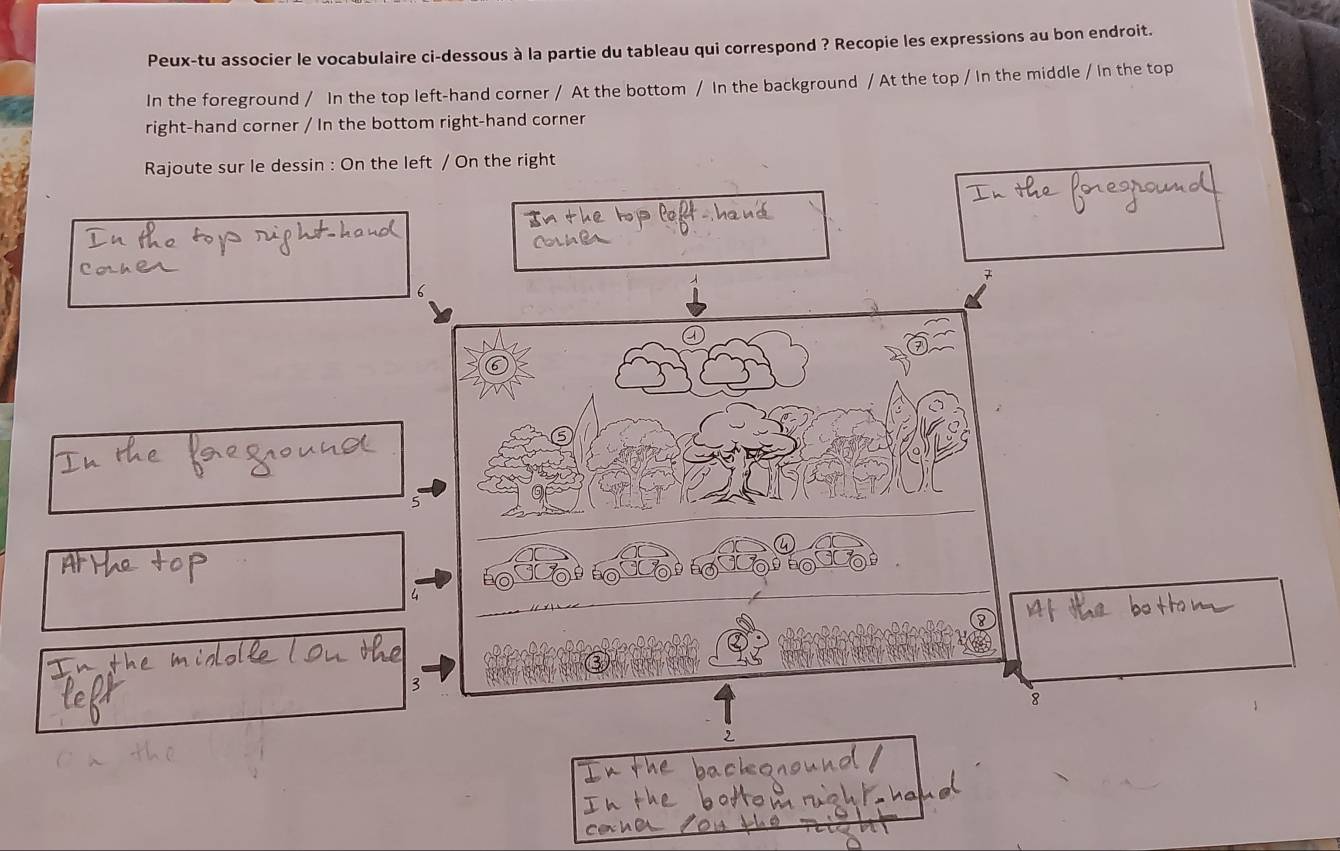 Peux-tu associer le vocabulaire ci-dessous à la partie du tableau qui correspond ? Recopie les expressions au bon endroit.
In the foreground / In the top left-hand corner / At the bottom / In the background / At the top / In the middle / In the top
right-hand corner / In the bottom right-hand corner
Rajoute sur le dessin : On the left / On the right
In the top right-hand
corner
In the top left-hand
corner
In the foreground
6
1
7
1
6
7
5
9
In the foreground
5
4
At the top
4
8
2
3
At the bottom
8
In the middle / on the
left
3
on the
2
In the background /
In the bottom right-hand
corner / on the right